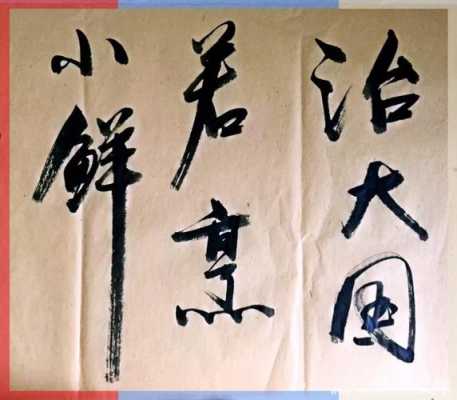 治大国
若烹
小鲜